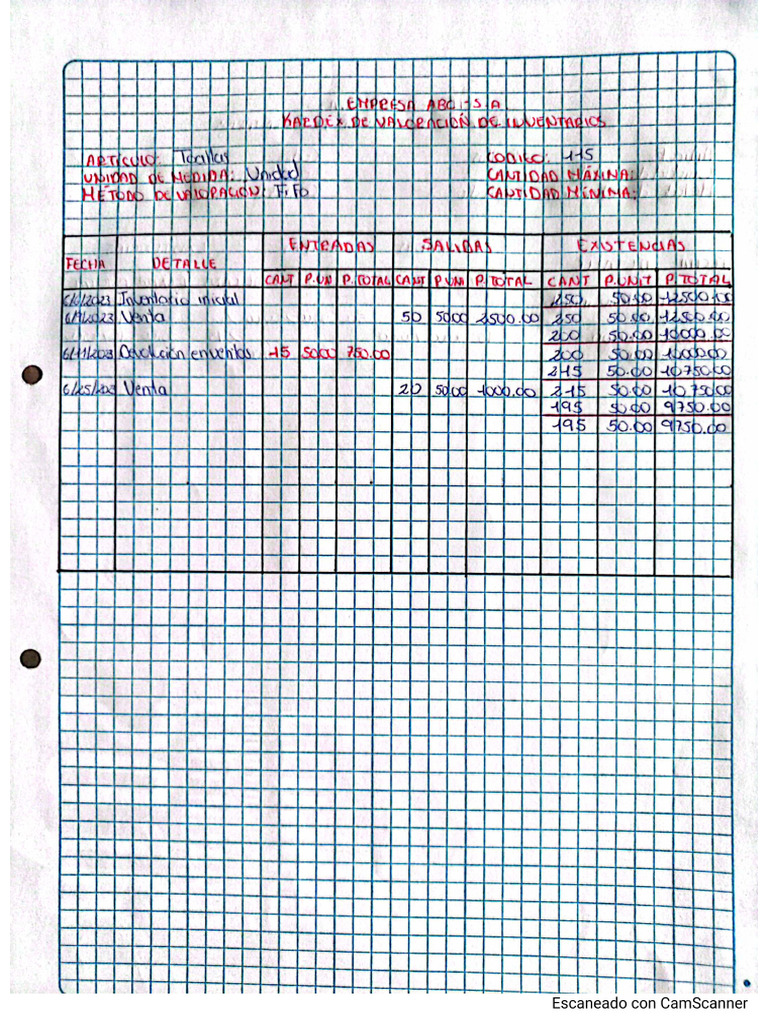 EMPRESA ABC S.A
KARDEX DE VALORACIÓN DE INVENTARIOS
ARTÍCULO: Toallas CODIGO: 115
UNIDAD DE MEDIDA: Unidad CANTIDAD MÁXIMA:
MÉTODO DE VALORACIÓN: FIFO CANTIDAD MÍNIMA:
ENTRADAS SALIDAS EXISTENCIAS
FECHA DETALLE
CANT P.UN P.TOTAL CANT P.UNI P.TOTAL CANT P.UNIT P.TOTAL
Inventario inicial 250 50.00 12500.00
Venta 50 50.00 2500.00 250 50.00 12500.00
200 50.00 10000.00
6/11/2023 Devolución en ventas 15 50.00 750.00 200 50.00 10000.00
215 50.00 10750.00
6/25/2023 Venta 20 50.00 1000.00 215 50.00 10750.00
195 50.00 9750.00
195 50.00 9750.00
Escaneado con CamScanner